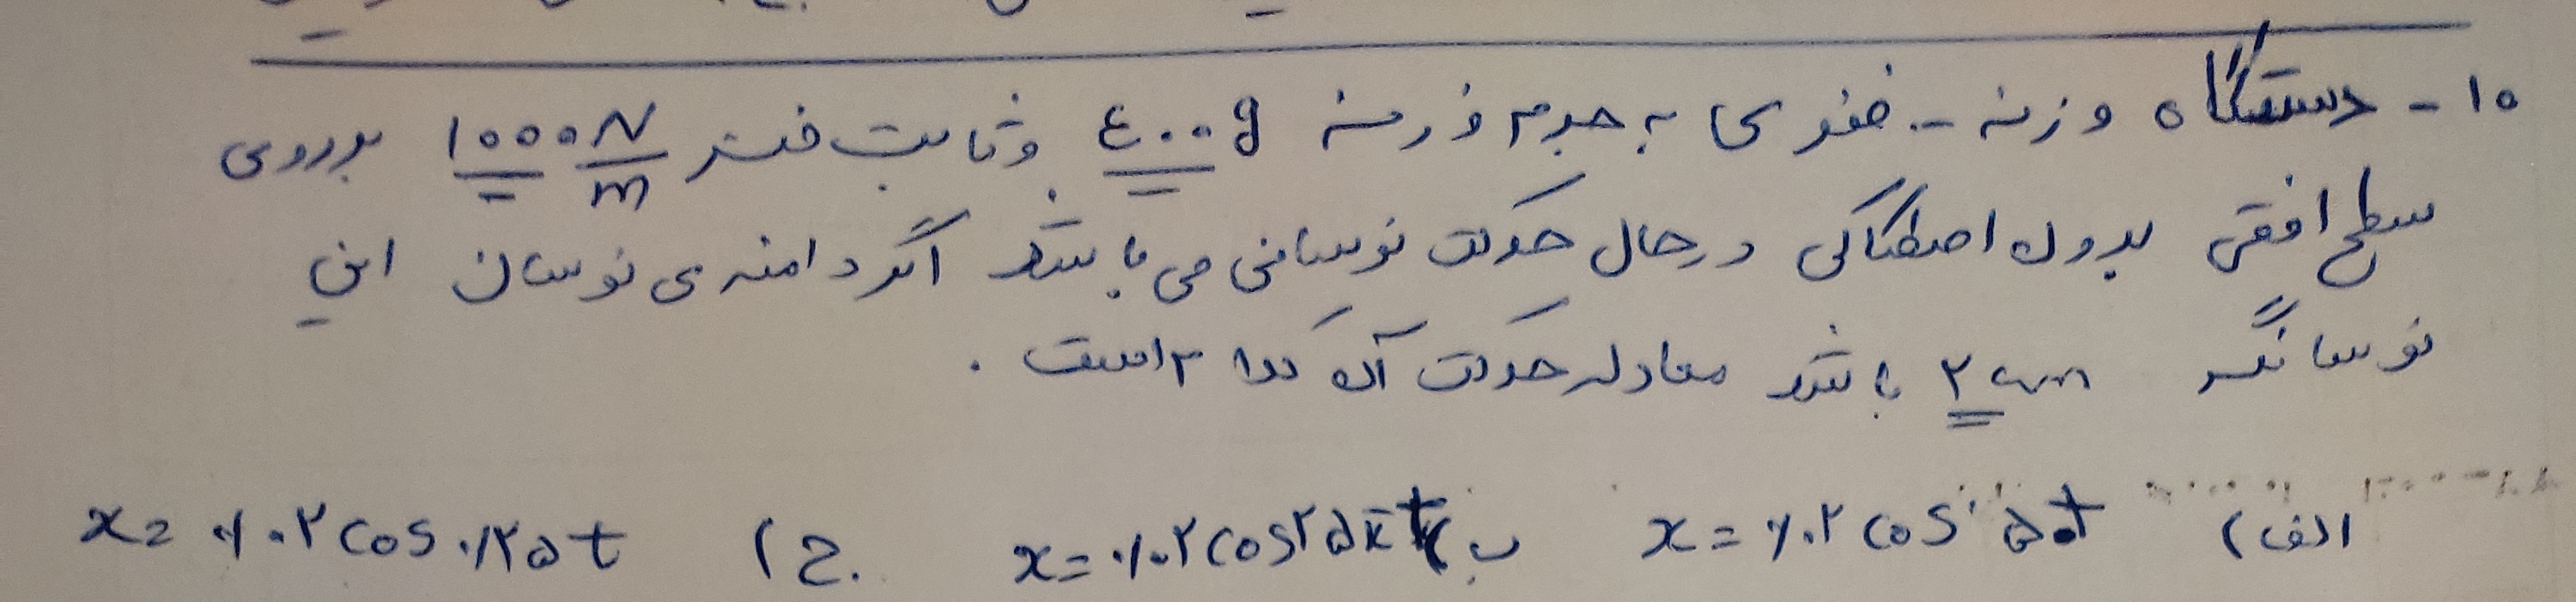 ۱۰ - دستگاه وزنه - فنری به جرم وزنه ۴۰۰g و ثابت فنر ۱۰۰۰ N/m برروی
سطح افقی بدون اصطکاکی در حال حرکت نوسانی می باشد اگر دامنه ی نوسان این
نوسانگر ۲ cm باشد معادله حرکت آن کدام است .
الف) x = ۰/۰۲ cos ۵۰t ب) x = ۰/۰۲ cos ۲۵πt ج) x = ۰/۰۲ cos ۰/۲۵t